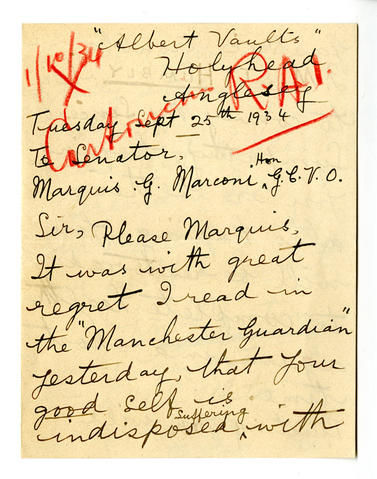 "Albert Vaults"
Holyhead
1/10/34
X
Anglesey
R.A.
Tuesday Sept 25th 1934
To Senator,
Marquis G. Marconi Hon G.C.V.O.
Sir, Please Marquis,
It was with great
regret I read in
the "Manchester Guardian"
yesterday, that your
good self is
indisposed, suffering with